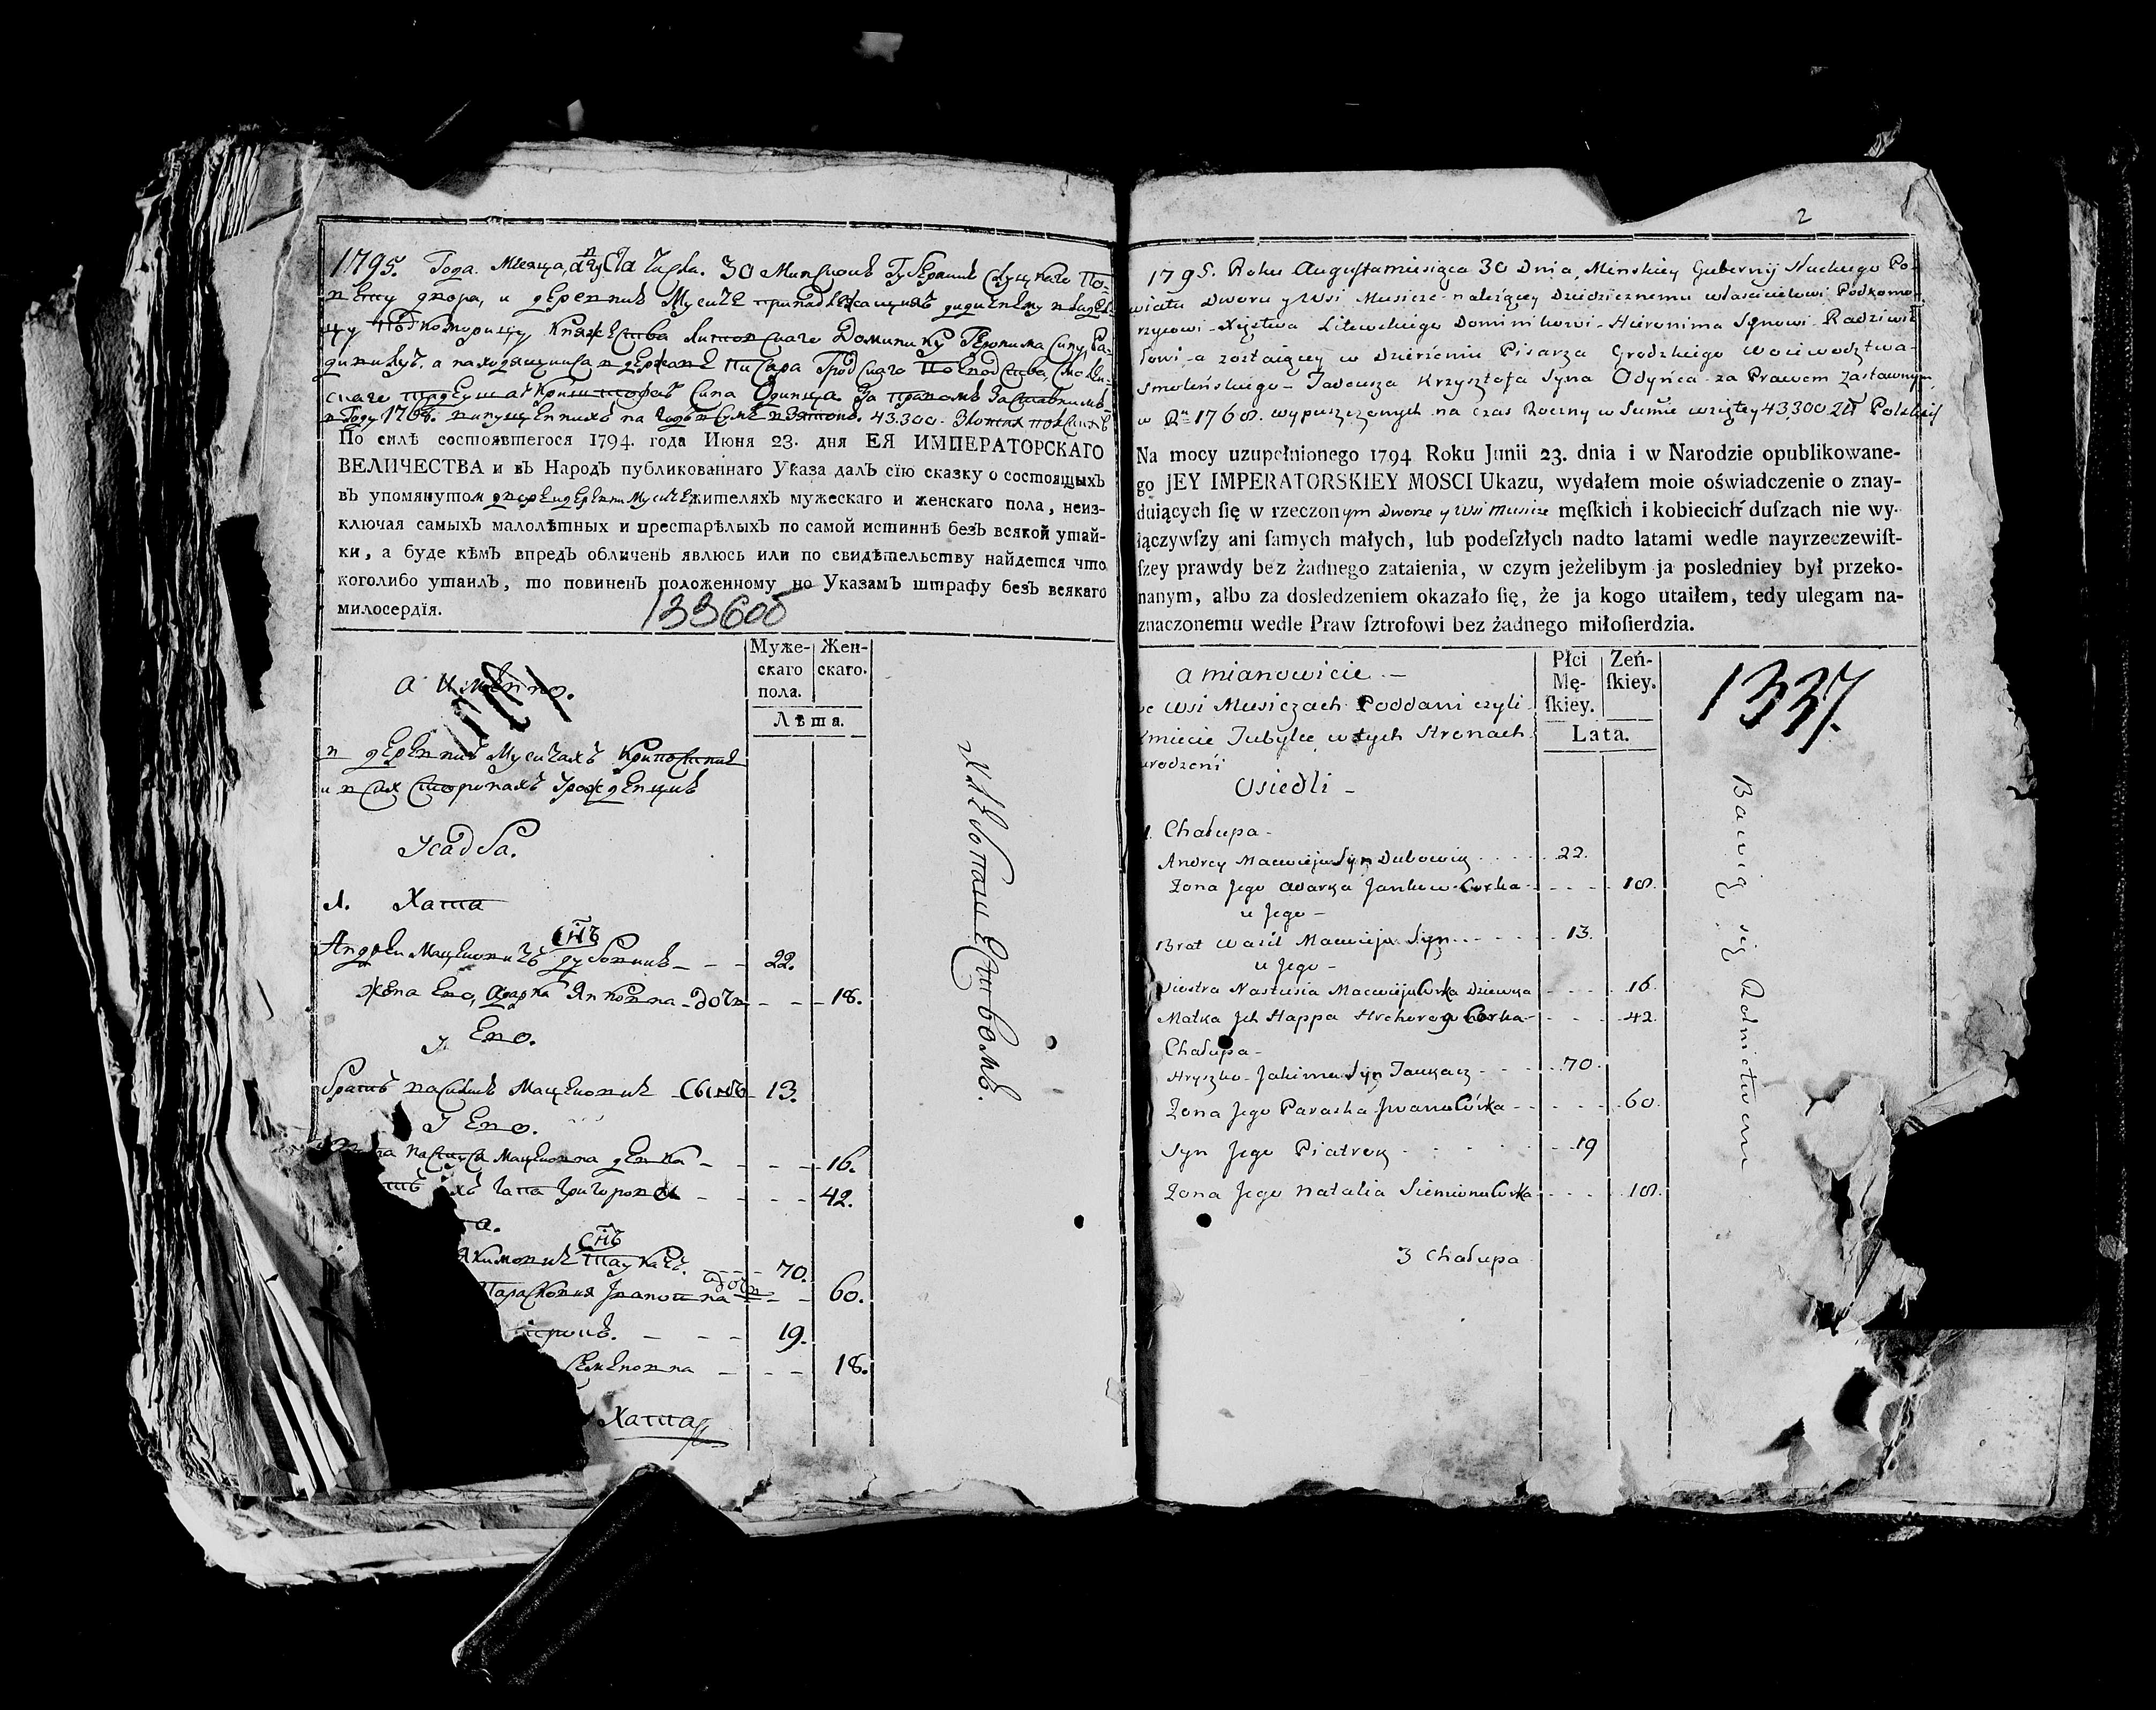 1795. Года. Месяца, августа числа. 30 Минскои Губернии Слуцкаго По-
вету двора, и деревни Мусиче принадлежащихъ дидичному владел-
цу Подкоморицу Княжества Литовскаго Доминику Геронима сину, Ра-
дивилу. а находящиися в держане Писара Гродскаго Воеводства, Смолен-
скаго Тадеуша Криштофа Сина Одинца. За правомъ Заставнимъ
в году 1768. випущенихъ на годъ в суме взятои. 43.300. Злотих полских
По силѣ состоявшегося 1794. года Июня 23. дня ЕЯ ИМПЕРАТОРСКАГО
ВЕЛИЧЕСТВА и въ Народъ публикованнаго Указа далъ сїю сказку о состоящыхъ
въ упомянутом дворе и деревни Мусиче жителяхъ мужескаго и женскаго пола, неиз-
ключая самыхъ малолѣтныхъ и престарѣлыхъ по самой истиннѣ безъ всякой утай-
ки, а буде кѣмъ впредъ обличенъ явлюсь или по свидѣтельству найдется что
коголибо утаилъ, то повиненъ положенному по Указамъ штрафу безъ всякаго
милосердїя.
133600
Муже-
скаго
пола.
Жен-
скаго.
Лѣта.
а именно.
в деревни Мусичахъ Кривостине
и в сих сторонахъ Урожденние
Усадба.
1. Хата
Андреи Мацеиовичъ снъ дубовик - - - 22.
Жена Ево, Адарка Янковна - дочь - - - 18.
У Ево.
братъ василь Мацеиовичъ - сынъ - 13.
У Ево.
настуся Мацеиовна девка - - - - 16.
ихъ гапа Григоровна - - - - 42.
Якимовичъ снъ таукачъ. - - - 70.
Парасковия Ивановна дочь - - - 60.
- - - 19.
Семеновна - - - 18.
Хата
хлѣбопашествомъ.
2
1795. Roku Augusta miesiąca 30 Dnia, Mińskiey Gubernij Słuckiego Po-
wiatu Dworu y Wsi Musicze należącey Dziedzicznemu właścicielowi Podkomo-
rzycowi Xięstwa Litewskiego Dominikowi Hieronima Synowi Radziwił
łowi a zostaiącey w Dzierżeniu Pisarza Grodzkiego Woiewodztwa
Smoleńskiego Tadeusza Krzysztofa Syna Odyńca za Prawem Zastawnym
w R. 1768. wypuszczonych na czas Roczny w Sumie wziętey 43,300 Złł Polskich
Na mocy uzupełnionego 1794 Roku Junii 23. dnia i w Narodzie opublikowane-
go JEY IMPERATORSKIEY MOSCI Ukazu, wydałem moie oświadczenie o znay-
duiących ſię w rzeczonym Dworze y Wsi Musicze męſkich i kobiecich duſzach nie wy-
łączywſzy ani ſamych małych, lub podeſzłych nadto latami wedle nayrzeczewiſt-
ſzey prawdy bez żadnego zataienia, w czym jeżelibym ja posledniey był przeko-
nanym, albo za dosledzeniem okazało ſię, że ja kogo utaiłem, tedy ulegam na-
znaczonemu wedle Praw ſztrofowi bez żadnego miłoſierdzia.
Płci
Mę-
ſkiey.
Zeń-
ſkiey.
Lata.
1337.
a mianowicie -
we Wsi Musiczach Poddani czyli
Kmiecie Jubylce w tych Stronach
urodzeni
Osiedli -
1. Chałupa -
Andrey Macwieja Syn Dubowik . . . . 22.
Zona Jego Adarka Jankowa Corka - - - - 18.
u Jego -
Brat Wasil Macwieja Syn . . . . 13.
u Jego -
Siostra Nastusia Macwieja Corka Dziewka - - - 16.
Matka Jch Happa Hrehorego Corka - - - 42.
Chałupa -
Hryszko Jakima Syn Taukacz - - - 70.
Zona Jego Paraska Jwana Córka - - - 60.
Syn Jego Piatrok - - - - 19
Zona Jego Natalia Siemiona Corka - - - 18.
3 Chałupa
Bawią się Rolnictwem